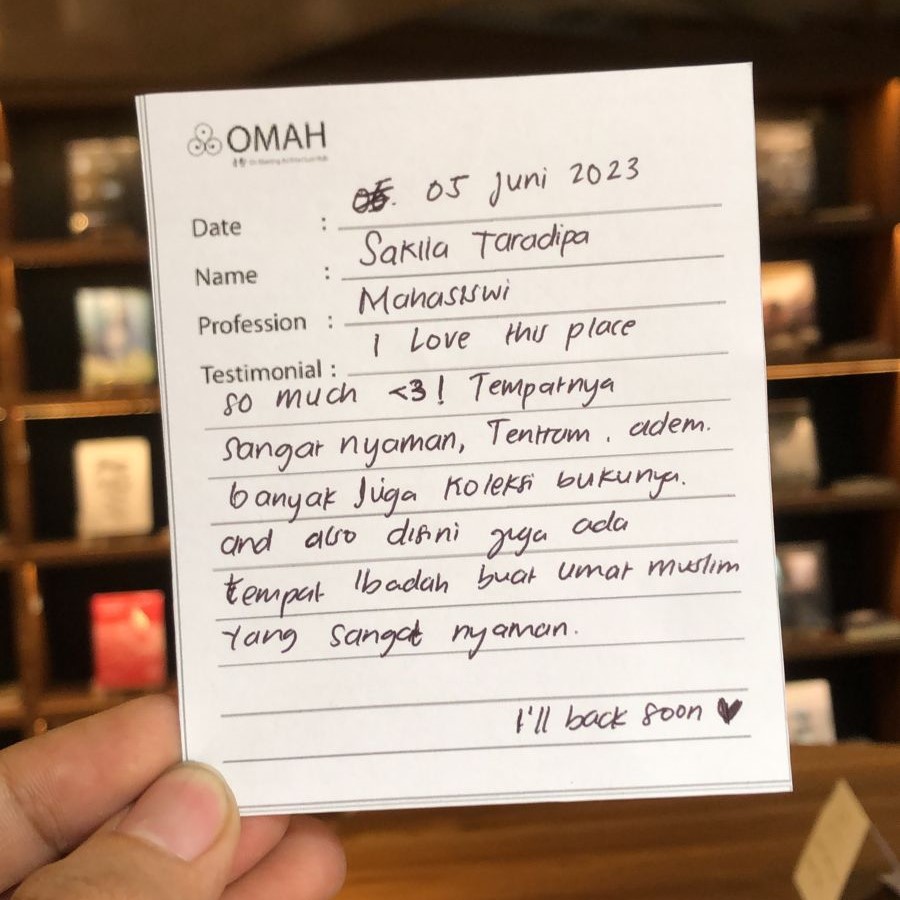 OMAH
Date : 05 Juni 2023
Name : Sakila Taradipa
Profession : Mahasiswi
Testimonial : I Love this place
so much <3! Tempatnya
sangat nyaman, Tentram, adem.
banyak Juga Koleksi bukunya.
and also disini juga ada
tempat Ibadah buat umat muslim
Yang sangat nyaman.
I'll back soon ♥